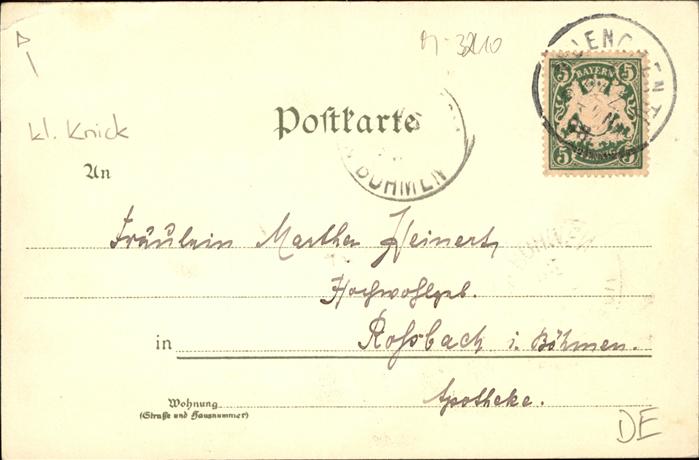 M-3210
kl. Knick
BAYERN
5 5
5 5
PFENNIG
Postkarte
BÖHMEN
An
Fräulein Martha Heinert,
Hochwohlgeb.
in Roßbach i. Böhmen.
Apotheke.
Wohnung
(Straße und Hausnummer)
DE